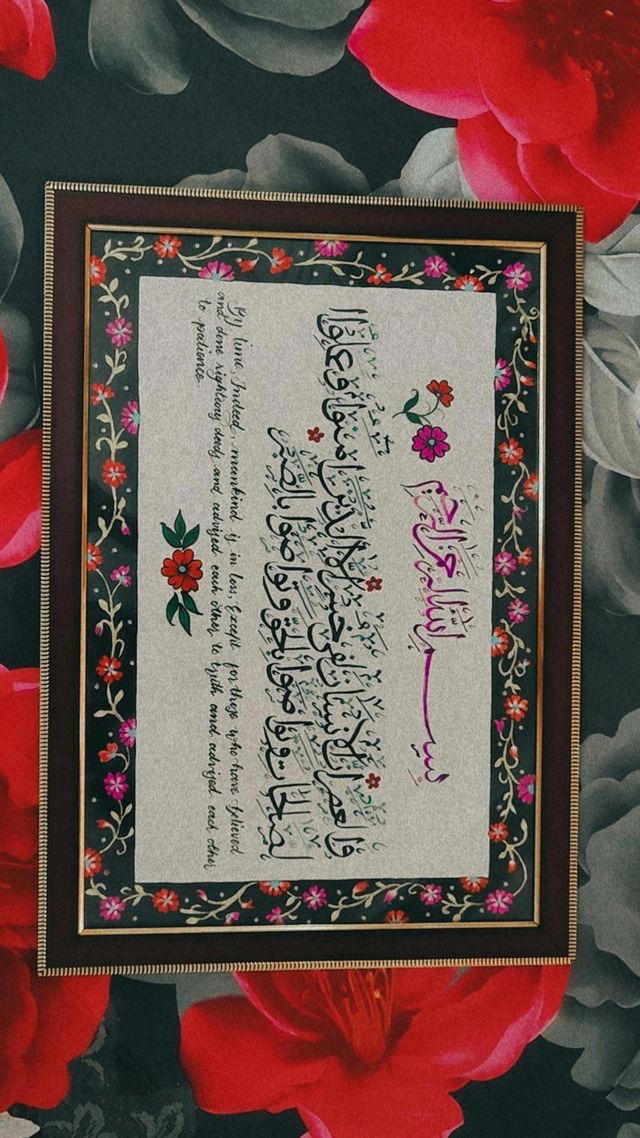 بِسْمِ اللَّهِ الرَّحْمَٰنِ الرَّحِيمِ
وَالْعَصْرِ إِنَّ الْإِنسَانَ لَفِي خُسْرٍ إِلَّا الَّذِينَ آمَنُوا وَعَمِلُوا ا
لصَّالِحَاتِ وَتَوَاصَوْا بِالْحَقِّ وَتَوَاصَوْا بِالصَّبْرِ
By time, Indeed, mankind is in loss, Except for those who have believed
and done righteous deeds and advised each other to truth and advised each other
to patience.